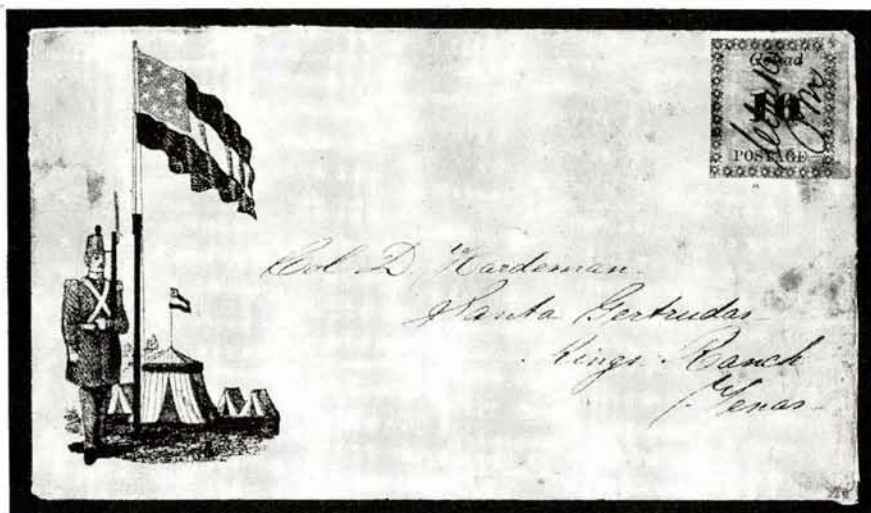 Goliad
10
POSTAGE
Col. D. Hardeman.
Santa Gertrudas
Kings Ranch
Texas